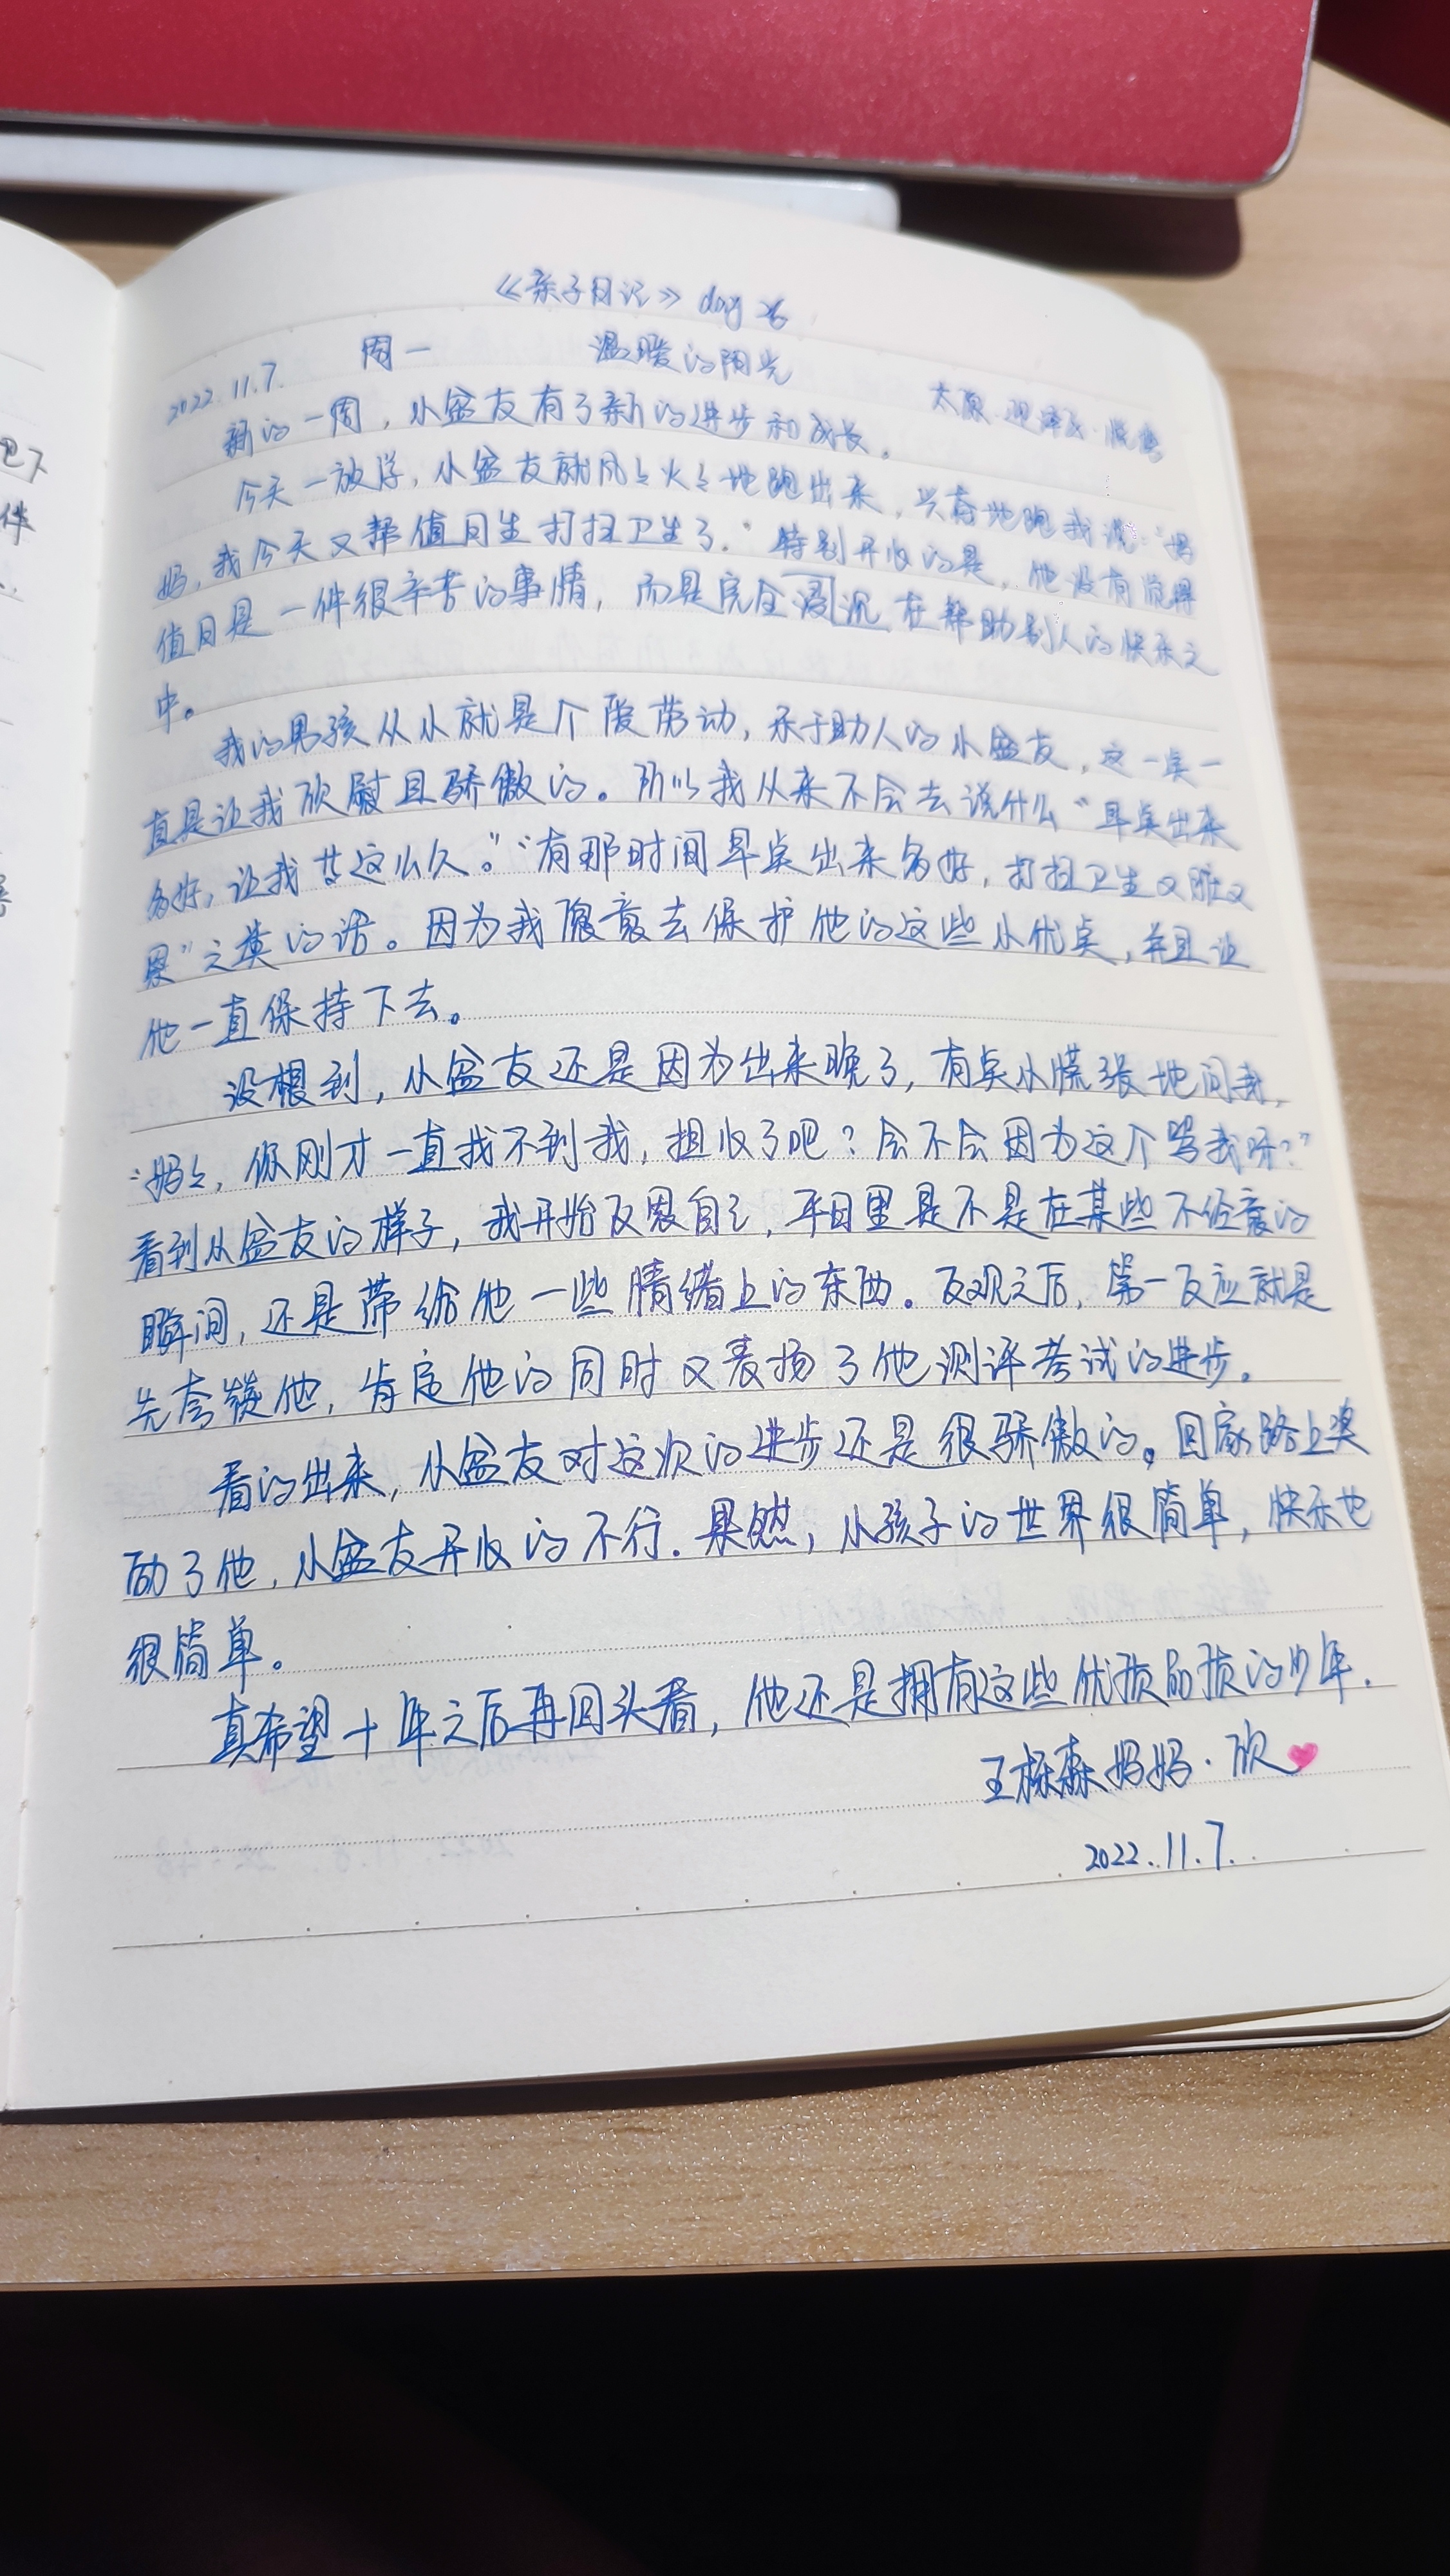 《亲子日记》 day 26
2022.11.7. 周一 温暖的阳光 太原·迎泽区·
新的一周，小盆友有了新的进步和成长。
今天一放学，小盆友就风风火火地跑出来，兴奋地跑我说：“妈
妈，我今天又帮值日生打扫卫生了。”特别开心的是，他没有觉得
值日是一件很辛苦的事情，而是完全浸沉在帮助别人的快乐之
中。
我的男孩从小就是个爱劳动，乐于助人的小盆友，这一点一
直是让我欣慰且骄傲的。所以我从来不会去说什么“早点出来
多好，让我 这么久。”“有那时间早点出来多好，打扫卫生又脏又
累”之类的话。因为我愿意去保护他的这些小优点，并且让
他一直保持下去。
没想到，小盆友还是因为出来晚了，有点小慌张地问我，
“妈妈，你刚才一直找不到我，担心了吧？会不会因为这个骂我呀？”
看到小盆友的样子，我开始反思自己，平日里是不是在某些不经意的
瞬间，还是带给他一些情绪上的东西。反观之后，第一反应就是
先夸赞他，肯定他的同时又表扬了他测评考试的进步。
看的出来，小盆友对这次的进步还是很骄傲的。回家路上奖
励了他，小盆友开心的不行。果然，小孩子的世界很简单，快乐也
很简单。
真希望十年之后再回头看，他还是拥有这些优质品质的少年．
王栎森妈妈·欣
2022.11.7.
件